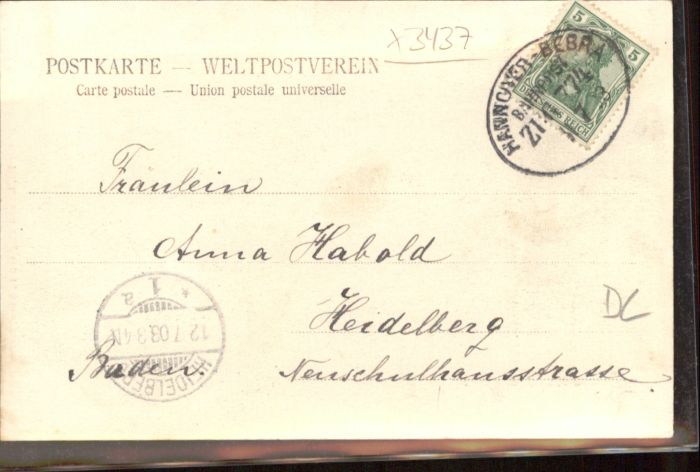 x3437
POSTKARTE — WELTPOSTVEREIN
Carte postale — Union postale universelle
5 5
DEUTSCHES REICH
HANNOVER-BEBRA
BAHNPOST
774
Fräulein
Anna Habold
Heidelberg
Baden. Neuschulhausstrasse
HEIDELBERG
12.7.03.3-4N.
* 1 a
DL